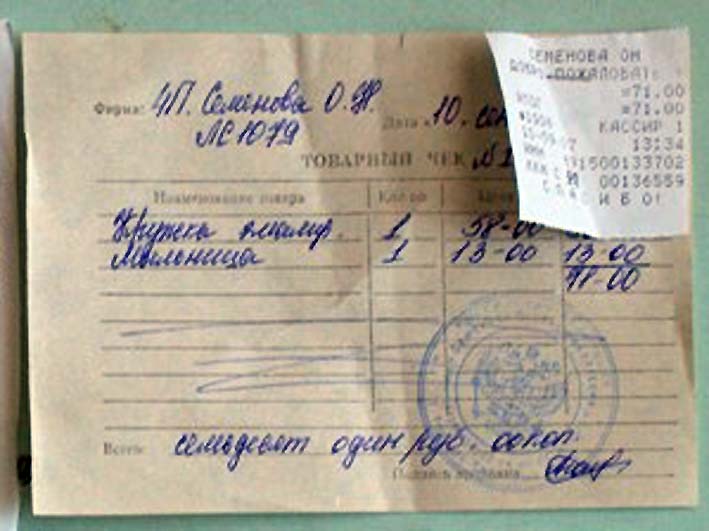 Фирма: ЧП. Семенова О.Н.
ЛС1079
Дата «10. сен
ТОВАРНЫЙ ЧЕК №1
Наименование товара Кол-во Цена
Кружка эмалир. 1 58-00
Мыльница 1 13-00 13-00
71-00
Всего: семьдесят один руб. 00коп.
Подпись продавца
СЕМЕНОВА ОМ
ДОБРО ПОЖАЛОВАТЬ
=71.00
ИТОГ =71.00
КАССИР 1
13:34
ИНН 00133702
00136559
СПАСИБО!